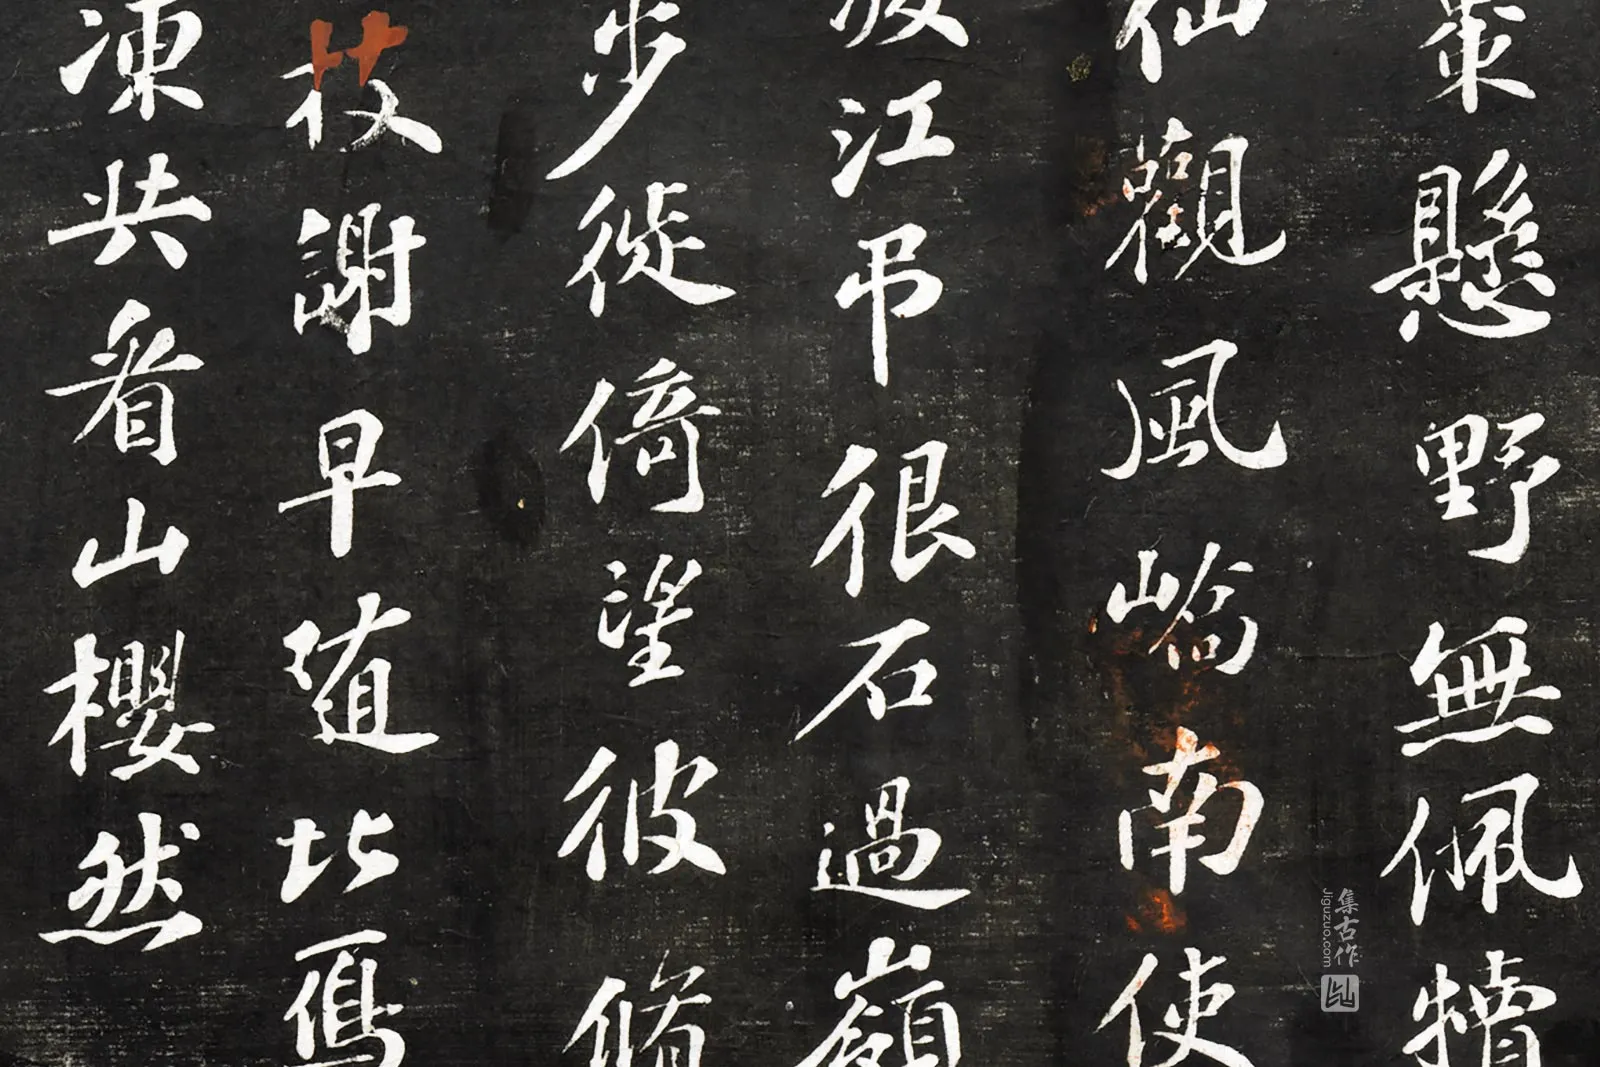 棗懸野無佩犢
仙觀風嶠南使
江弔很石過嶺
步徙倚望彼脩
枝謝早随北鴈
凍共看山櫻然
集古作
Jiguzuo.com